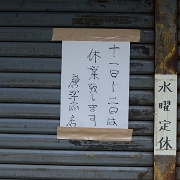 十一日十二日は
休業致します
店
水曜定休